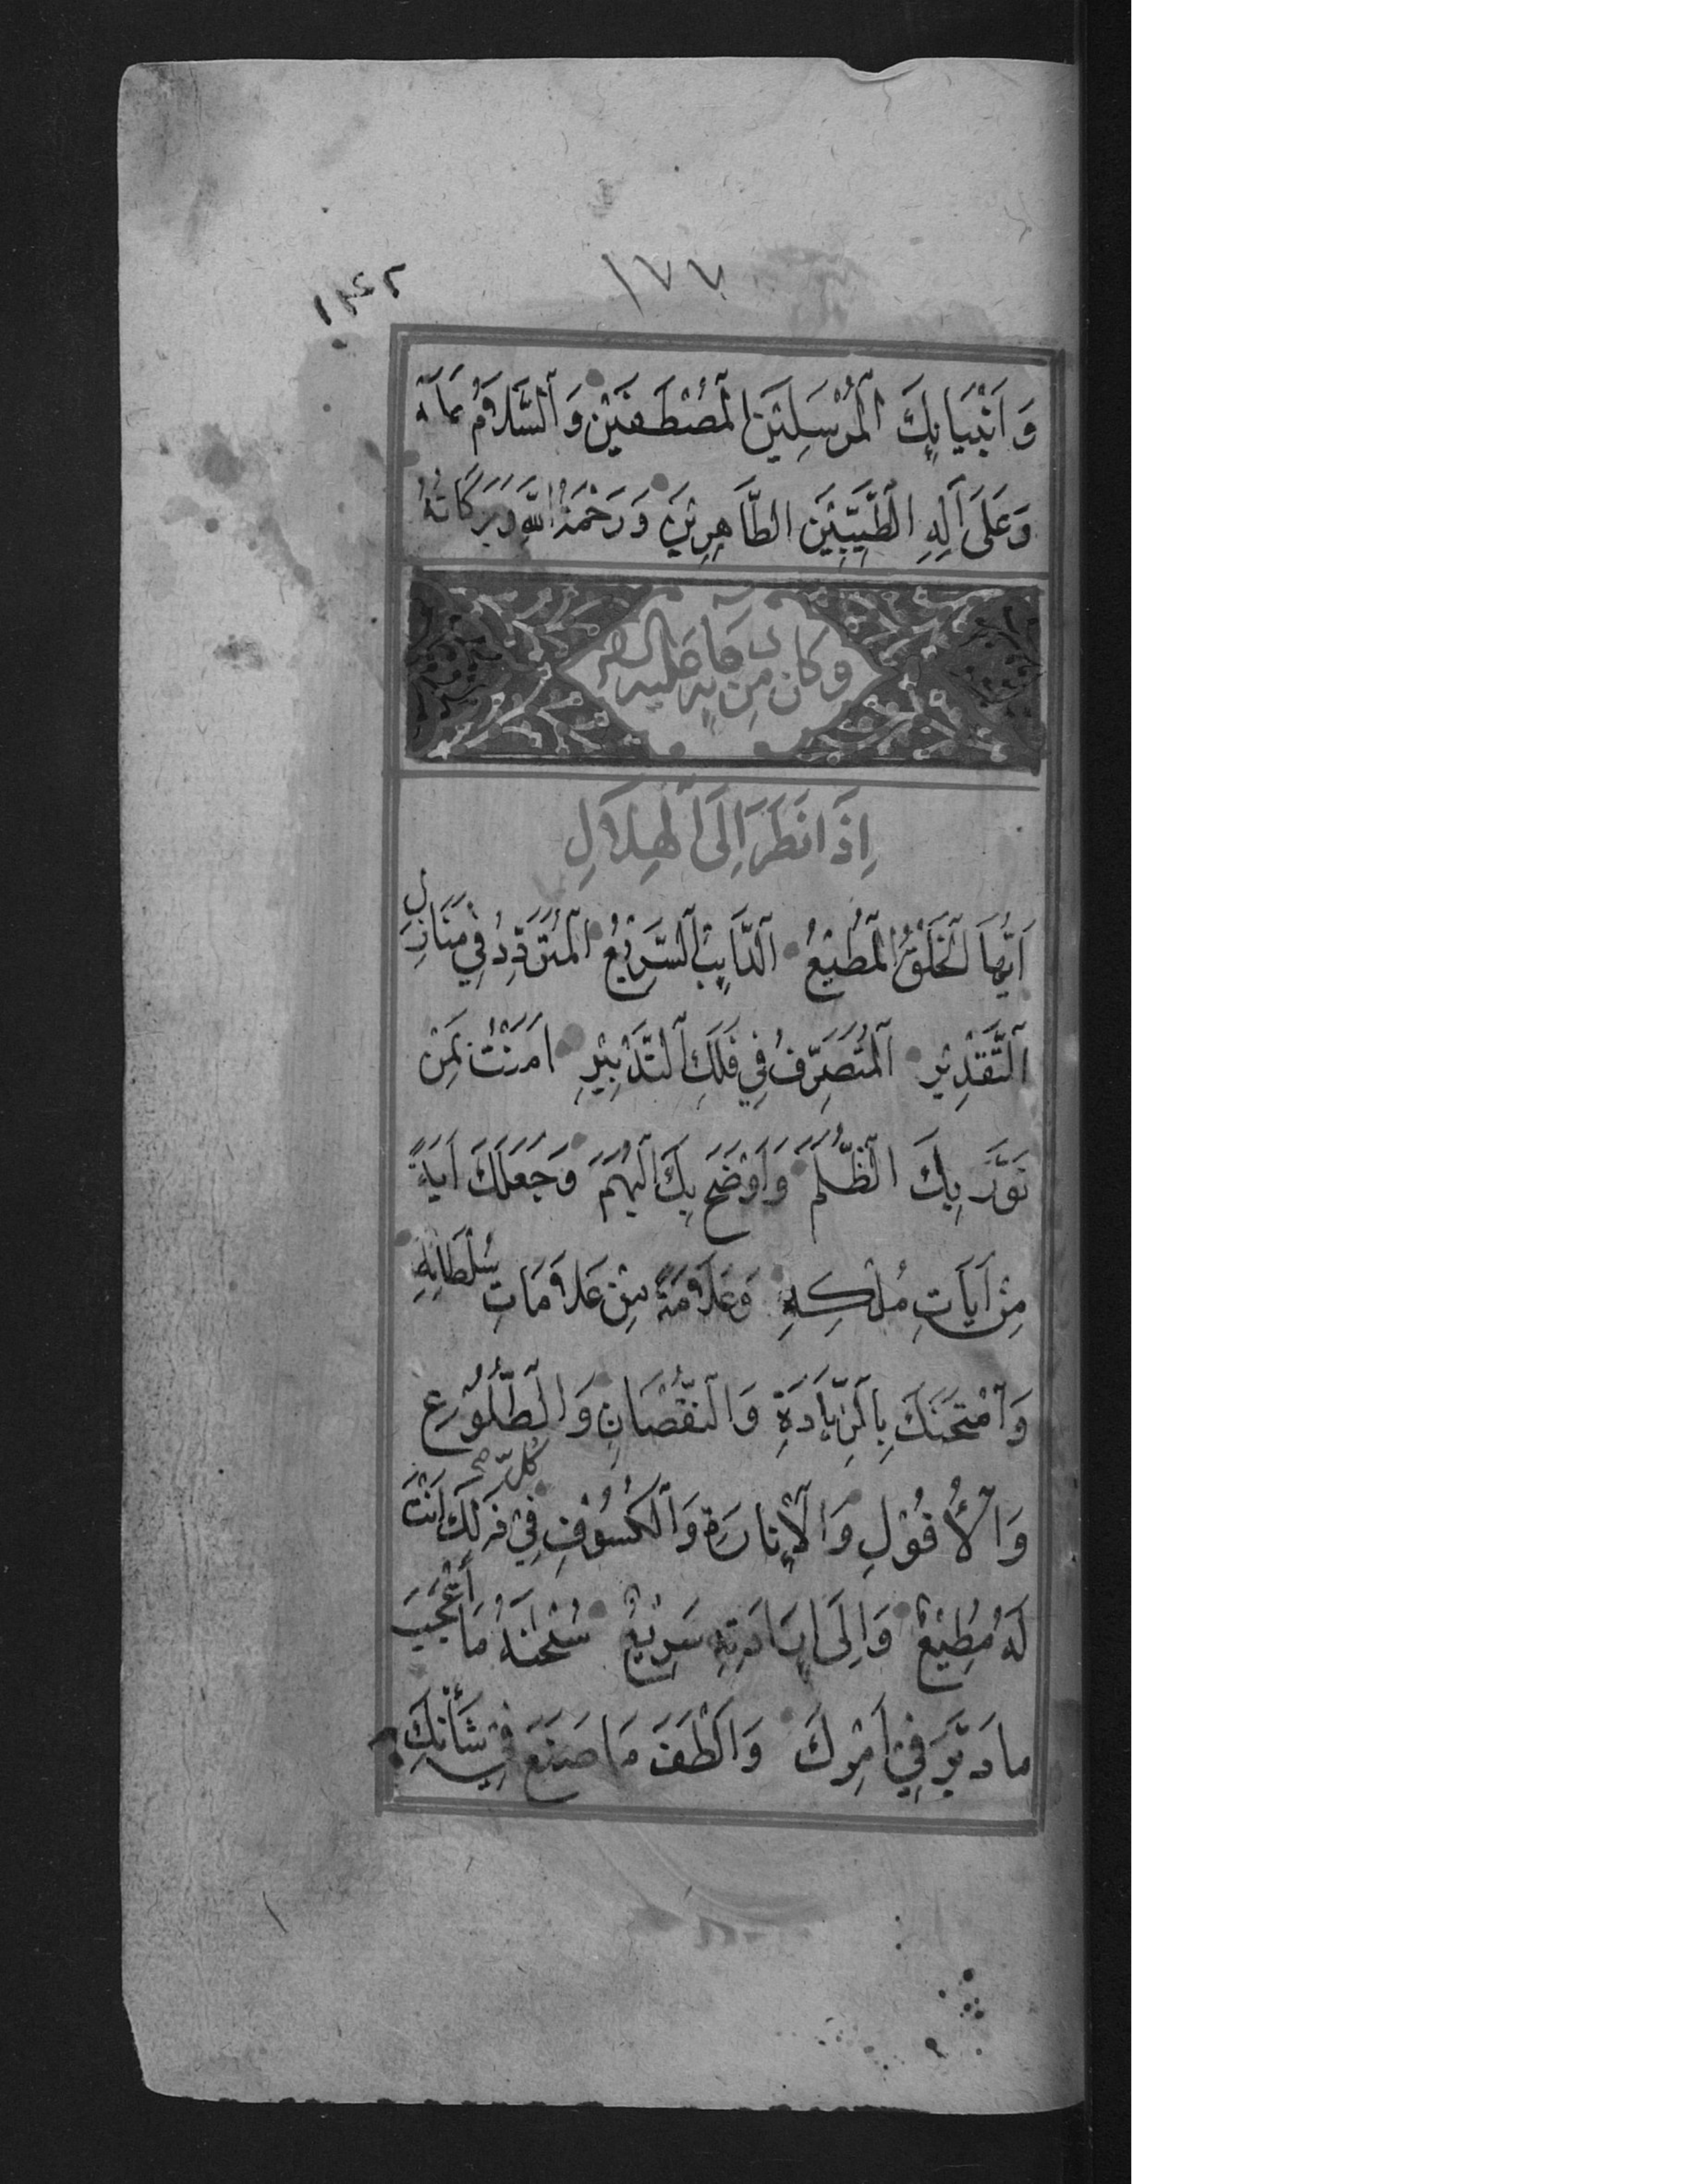 ١٧٧
١٤٢
وَ اَنْبِيَائِكَ ٱلْمُرْسَلِيْنَ ٱلْمُصْطَفَيْنَ وَ ٱلسَّلَامُ
وَعَلَى آلِهِ ٱلطَّيِّبِيْنَ الطَّاهِرِيْنَ وَ رَحْمَةُ اللهِ وَبَرَكَاتُهُ
وَكَانَ مِنْ دُعَائِهِ عَلَيْهِ السَّلَام
اِذَا نَظَرَ اِلَى الْهِلَالِ
اَيُّهَا ٱلْخَلْقُ الْمُطِيْعُ ٱلدَّائِبُ ٱلسَّرِيْعُ الْمُتَرَدِّدُ فِي مَنَازِلِ
ٱلتَّقْدِيْرِ ٱلْمُتَصَرِّفُ فِي فَلَكِ ٱلتَّدْبِيْرِ اٰمَنْتُ بِمَنْ
نَوَّرَ بِكَ الظُّلَمَ وَ اَوْضَحَ بِكَ الْبُهَمَ وَ جَعَلَكَ اٰيَةً
مِنْ آيَاتِ مُلْكِهِ وَ عَلَامَةً مِنْ عَلَامَاتِ سُلْطَانِهِ
وَ ٱمْتَحَنَكَ بِالزِّيَادَةِ وَ النُّقْصَانِ وَ الطُّلُوْعِ
وَ ٱلْاُفُوْلِ وَ الْاِنَارَةِ وَ ٱلْكُسُوْفِ فِيْ كُلِّ ذٰلِكَ اَنْتَ
لَهُ مُطِيْعٌ وَ اِلَى اِرَادَتِهِ سَرِيْعٌ سُبْحٰنَهُ مَا أَعْجَبَ
ما دَبَّرَ فِيْ اَمْرِكَ وَ اَلْطَفَ مَا صَنَعَ فِي شَأْنِكَ